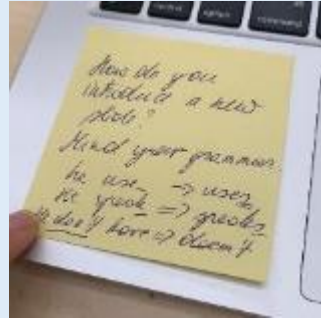 option
command
How do you
introduce a new
slide?
Mind your grammar.
he use_ -> uses
He speak_ => speaks
He don't have => doesn't